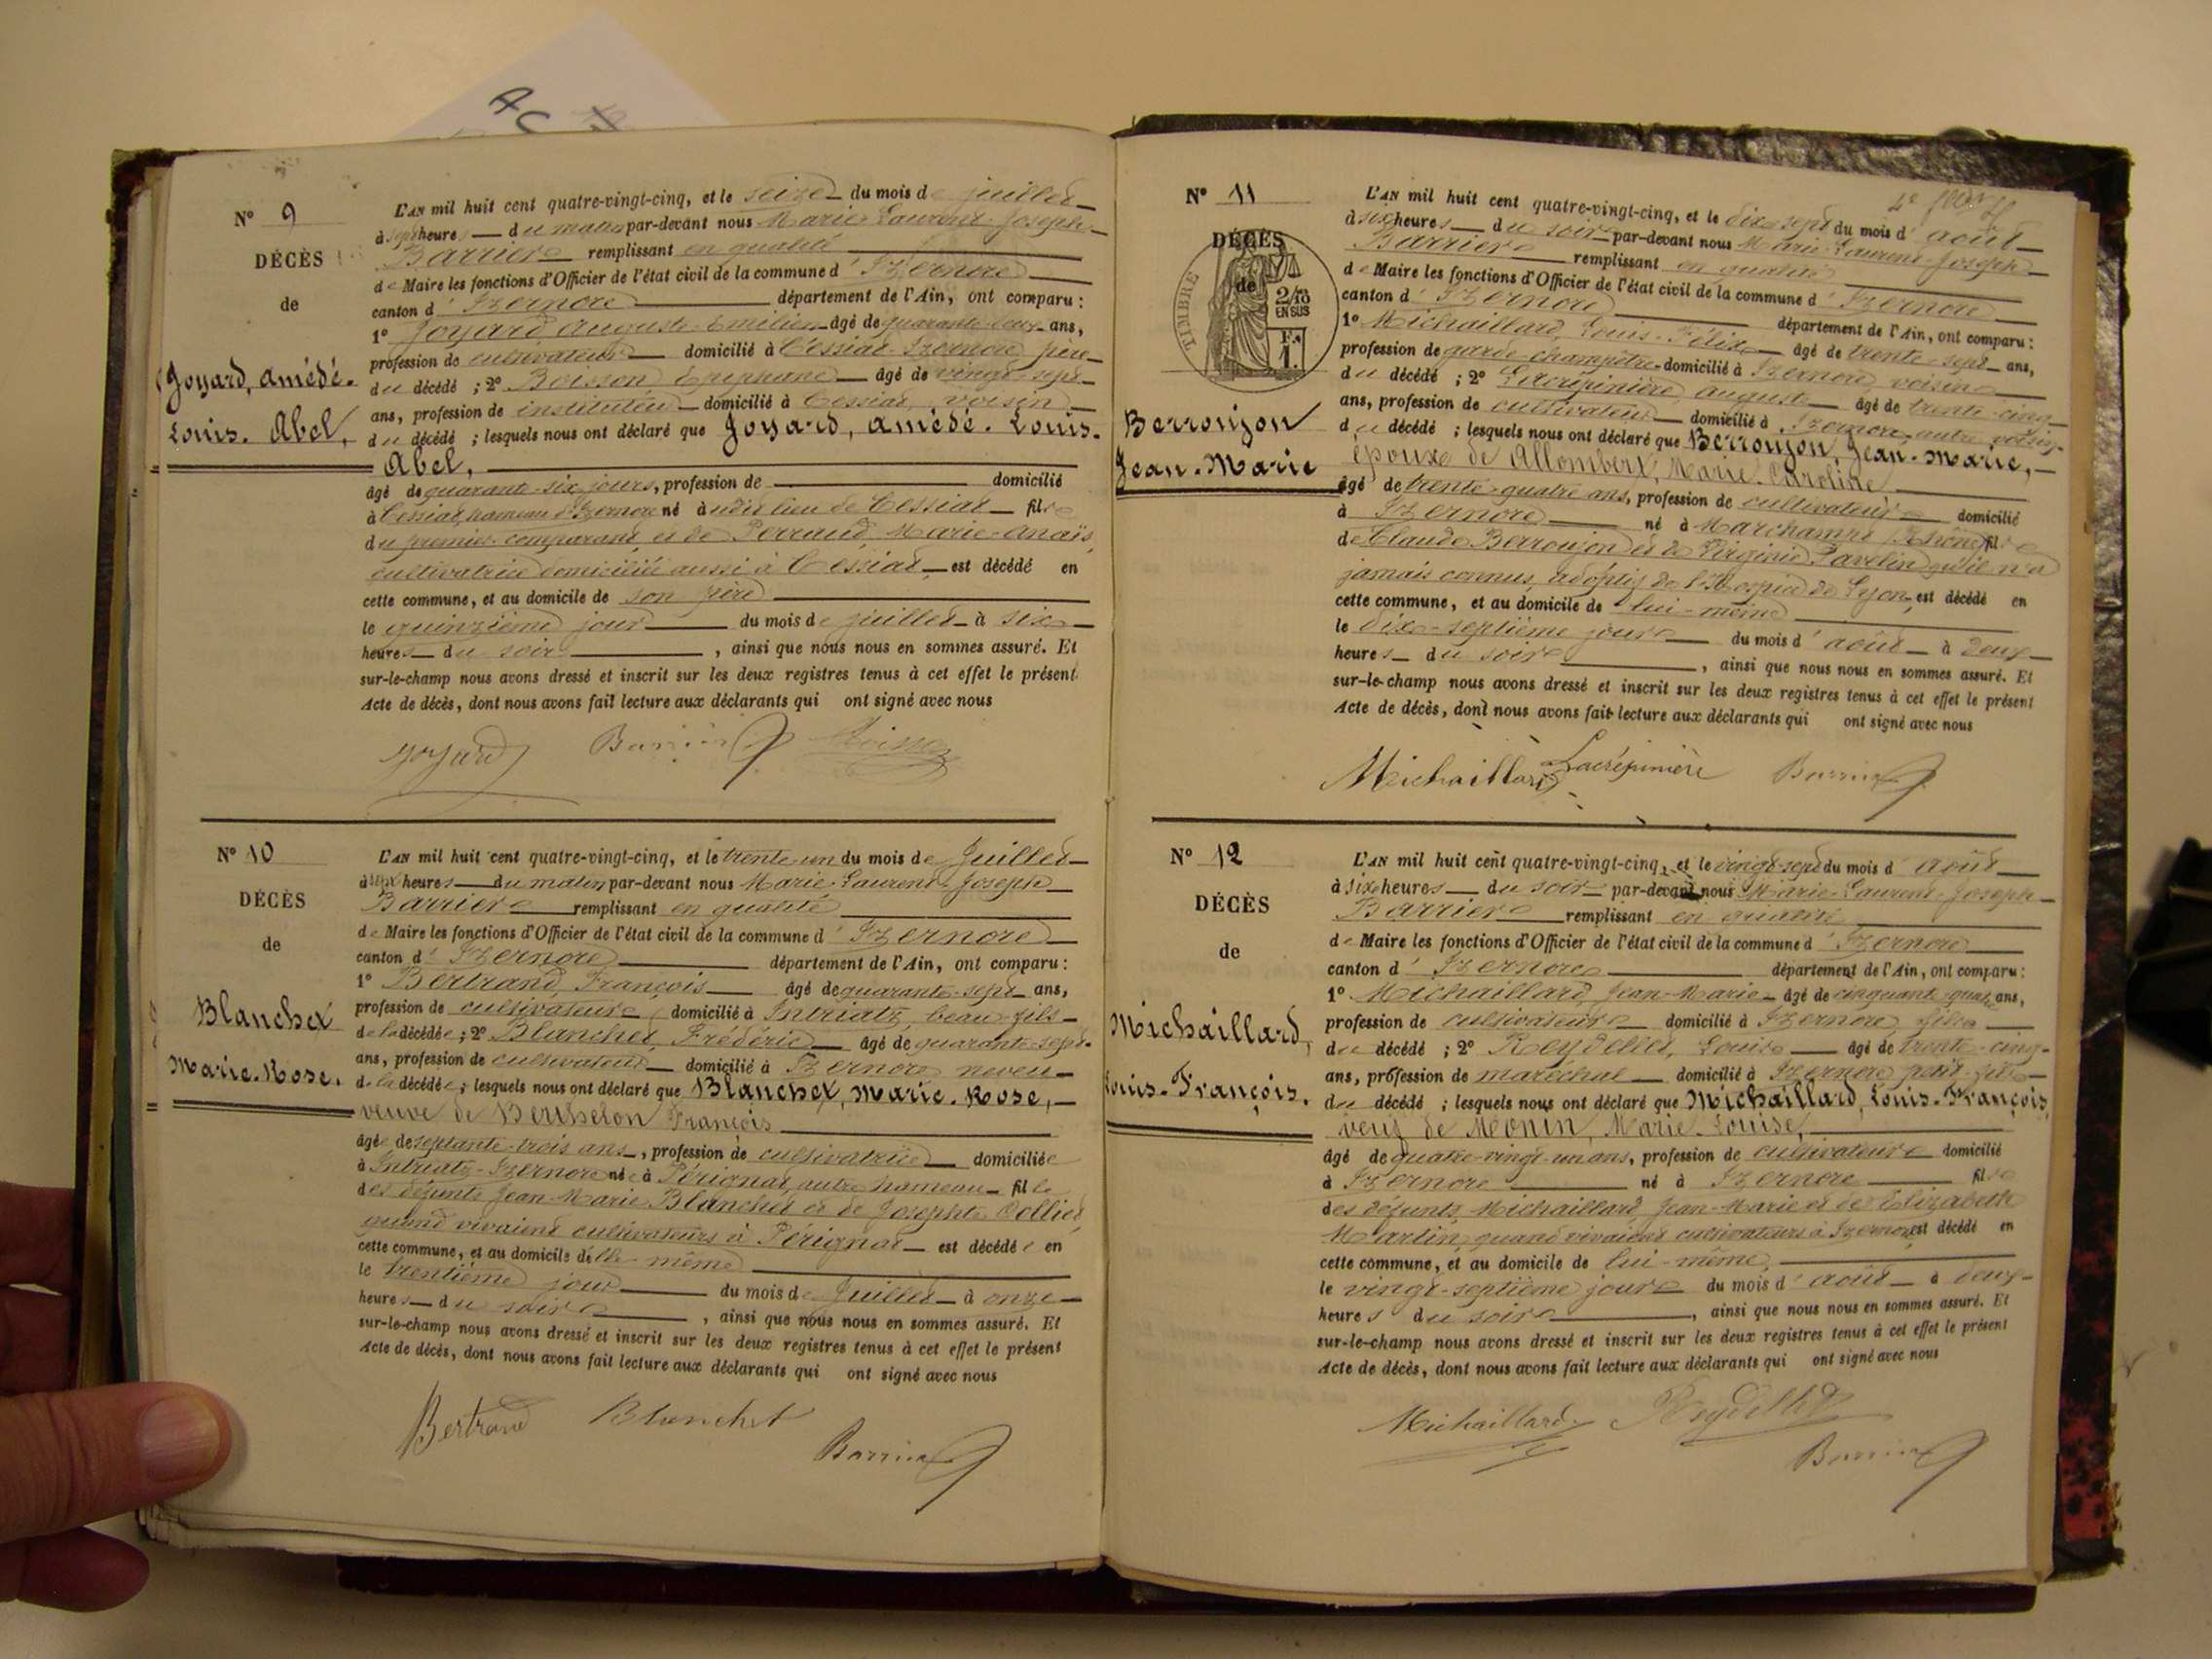 AC
N° 9
DÉCÈS
de
Joyard, amédé.
Louis. Abel,
L'AN mil huit cent quatre-vingt-cinq, et le seize du mois de juillet
à sept heures du matin par-devant nous Marie Laurent Joseph
Barrier remplissant en qualité
de Maire les fonctions d'Officier de l'état civil de la commune d'Izernore
canton d'Izernore département de l'Ain, ont comparu :
1° Joyard Auguste Emilien âgé de quarante deux ans,
profession de cultivateur domicilié à Cessiat Izernore père
du décédé ; 2° Boisson Epiphane âgé de vingt sept
ans, profession de instituteur domicilié à Cessiat, voisin
du décédé ; lesquels nous ont déclaré que Joyard, amédé. Louis.
Abel,
âgé de quarante-six jours, profession de domicilié
à Cessiat, hameau d'Izernore né à udit lieu de Cessiat fils
du premier comparant et de Perraud, Marie-Anaïs,
cultivatrice domiciliée aussi à Cessiat est décédé en
cette commune, et au domicile de son père
le quinzième jour du mois de juillet à six
heures du soir , ainsi que nous nous en sommes assuré. Et
sur-le-champ nous avons dressé et inscrit sur les deux registres tenus à cet effet le présent
Acte de décès, dont nous avons fait lecture aux déclarants qui ont signé avec nous
Joyard Barrier Boisson
N° 10
DÉCÈS
de
Blanchet
Marie. Rose.
L'AN mil huit cent quatre-vingt-cinq, et le trente-un du mois de Juillet
à sept heures du matin par-devant nous Marie Laurent Joseph
Barrier remplissant en qualité
de Maire les fonctions d'Officier de l'état civil de la commune d'Izernore
canton d'Izernore département de l'Ain, ont comparu :
1° Bertrand, François âgé de quarante-sept ans,
profession de cultivateur domicilié à Intriatz, beau-fils
de la décédée ; 2° Blanchet, Frédéric âgé de quarante-sept
ans, profession de cultivateur domicilié à Izernore neveu
de la décédée ; lesquels nous ont déclaré que Blanchet, Marie. Rose,
veuve de Berthelon François
âgée de septante-trois ans, profession de cultivatrice domiciliée
à Intriatz-Izernore née à Pérignat, autre hameau fille
des défunts Jean-Marie Blanchet et de Josephte Collier
quand vivaient cultivateurs à Pérignat est décédée en
cette commune, et au domicile d'elle-même
le trentième jour du mois de Juillet à onze
heures du soir , ainsi que nous nous en sommes assuré. Et
sur-le-champ nous avons dressé et inscrit sur les deux registres tenus à cet effet le présent
Acte de décès, dont nous avons fait lecture aux déclarants qui ont signé avec nous
Bertrand Blanchet
Barrier
N° 11
DÉCÈS
de
TIMBRE
2/10
EN SUS
Berroujon
Jean-Marie
L'AN mil huit cent quatre-vingt-cinq, et le dix-sept du mois d'août
à six heures du soir par-devant nous Marie-Laurent-Joseph
Barrier remplissant en qualité
de Maire les fonctions d'Officier de l'état civil de la commune d'Izernore
canton d'Izernore département de l'Ain, ont comparu :
1° Michaillard, Louis-Félix âgé de trente-sept ans,
profession de garde-champêtre domicilié à Izernore, voisin
du décédé ; 2° Lacrépinière, auguste âgé de trente-cinq
ans, profession de cultivateur domicilié à Izernore, autre voisin
du décédé ; lesquels nous ont déclaré que Berroujon, Jean-Marie,
époux de Allombert, Marie-Caroline
âgé de trente-quatre ans, profession de cultivateur domicilié
à Izernore né à Marchampt (Rhône) fils
de Claude Berroujon et de Virginie Pavelin qu'il n'a
jamais connus, adoptif de l'Hospice de Lyon est décédé en
cette commune, et au domicile de lui-même
le dix-septième jour du mois d'août à deux
heures du soir , ainsi que nous nous en sommes assuré. Et
sur-le-champ nous avons dressé et inscrit sur les deux registres tenus à cet effet le présent
Acte de décès, dont nous avons fait lecture aux déclarants qui ont signé avec nous
Michaillard Lacrépinière Barrier
N° 12
DÉCÈS
de
Michaillard,
Louis-François.
L'AN mil huit cent quatre-vingt-cinq, et le vingt-sept du mois d'août
à six heures du soir par-devant nous Marie-Laurent-Joseph
Barrier remplissant en qualité
de Maire les fonctions d'Officier de l'état civil de la commune d'Izernore
canton d'Izernore département de l'Ain, ont comparu :
1° Michaillard, Jean-Marie âgé de cinquante-quatre ans,
profession de cultivateur domicilié à Izernore, fils
du décédé ; 2° Reydellet, Louis âgé de trente-cinq
ans, profession de maréchal domicilié à Izernore petit-fils
du décédé ; lesquels nous ont déclaré que Michaillard, Louis-François,
veuf de Monin, Marie-Louise,
âgé de quatre-vingt-un ans, profession de cultivateur domicilié
à Izernore né à Izernore fils
des défunts Michaillard Jean-Marie et de Elizabeth
Martin, quand vivaient cultivateurs à Izernore est décédé en
cette commune, et au domicile de lui-même,
le vingt-septième jour du mois d'août à deux
heures du soir , ainsi que nous nous en sommes assuré. Et
sur-le-champ nous avons dressé et inscrit sur les deux registres tenus à cet effet le présent
Acte de décès, dont nous avons fait lecture aux déclarants qui ont signé avec nous
Michaillard Reydellet
Barrier